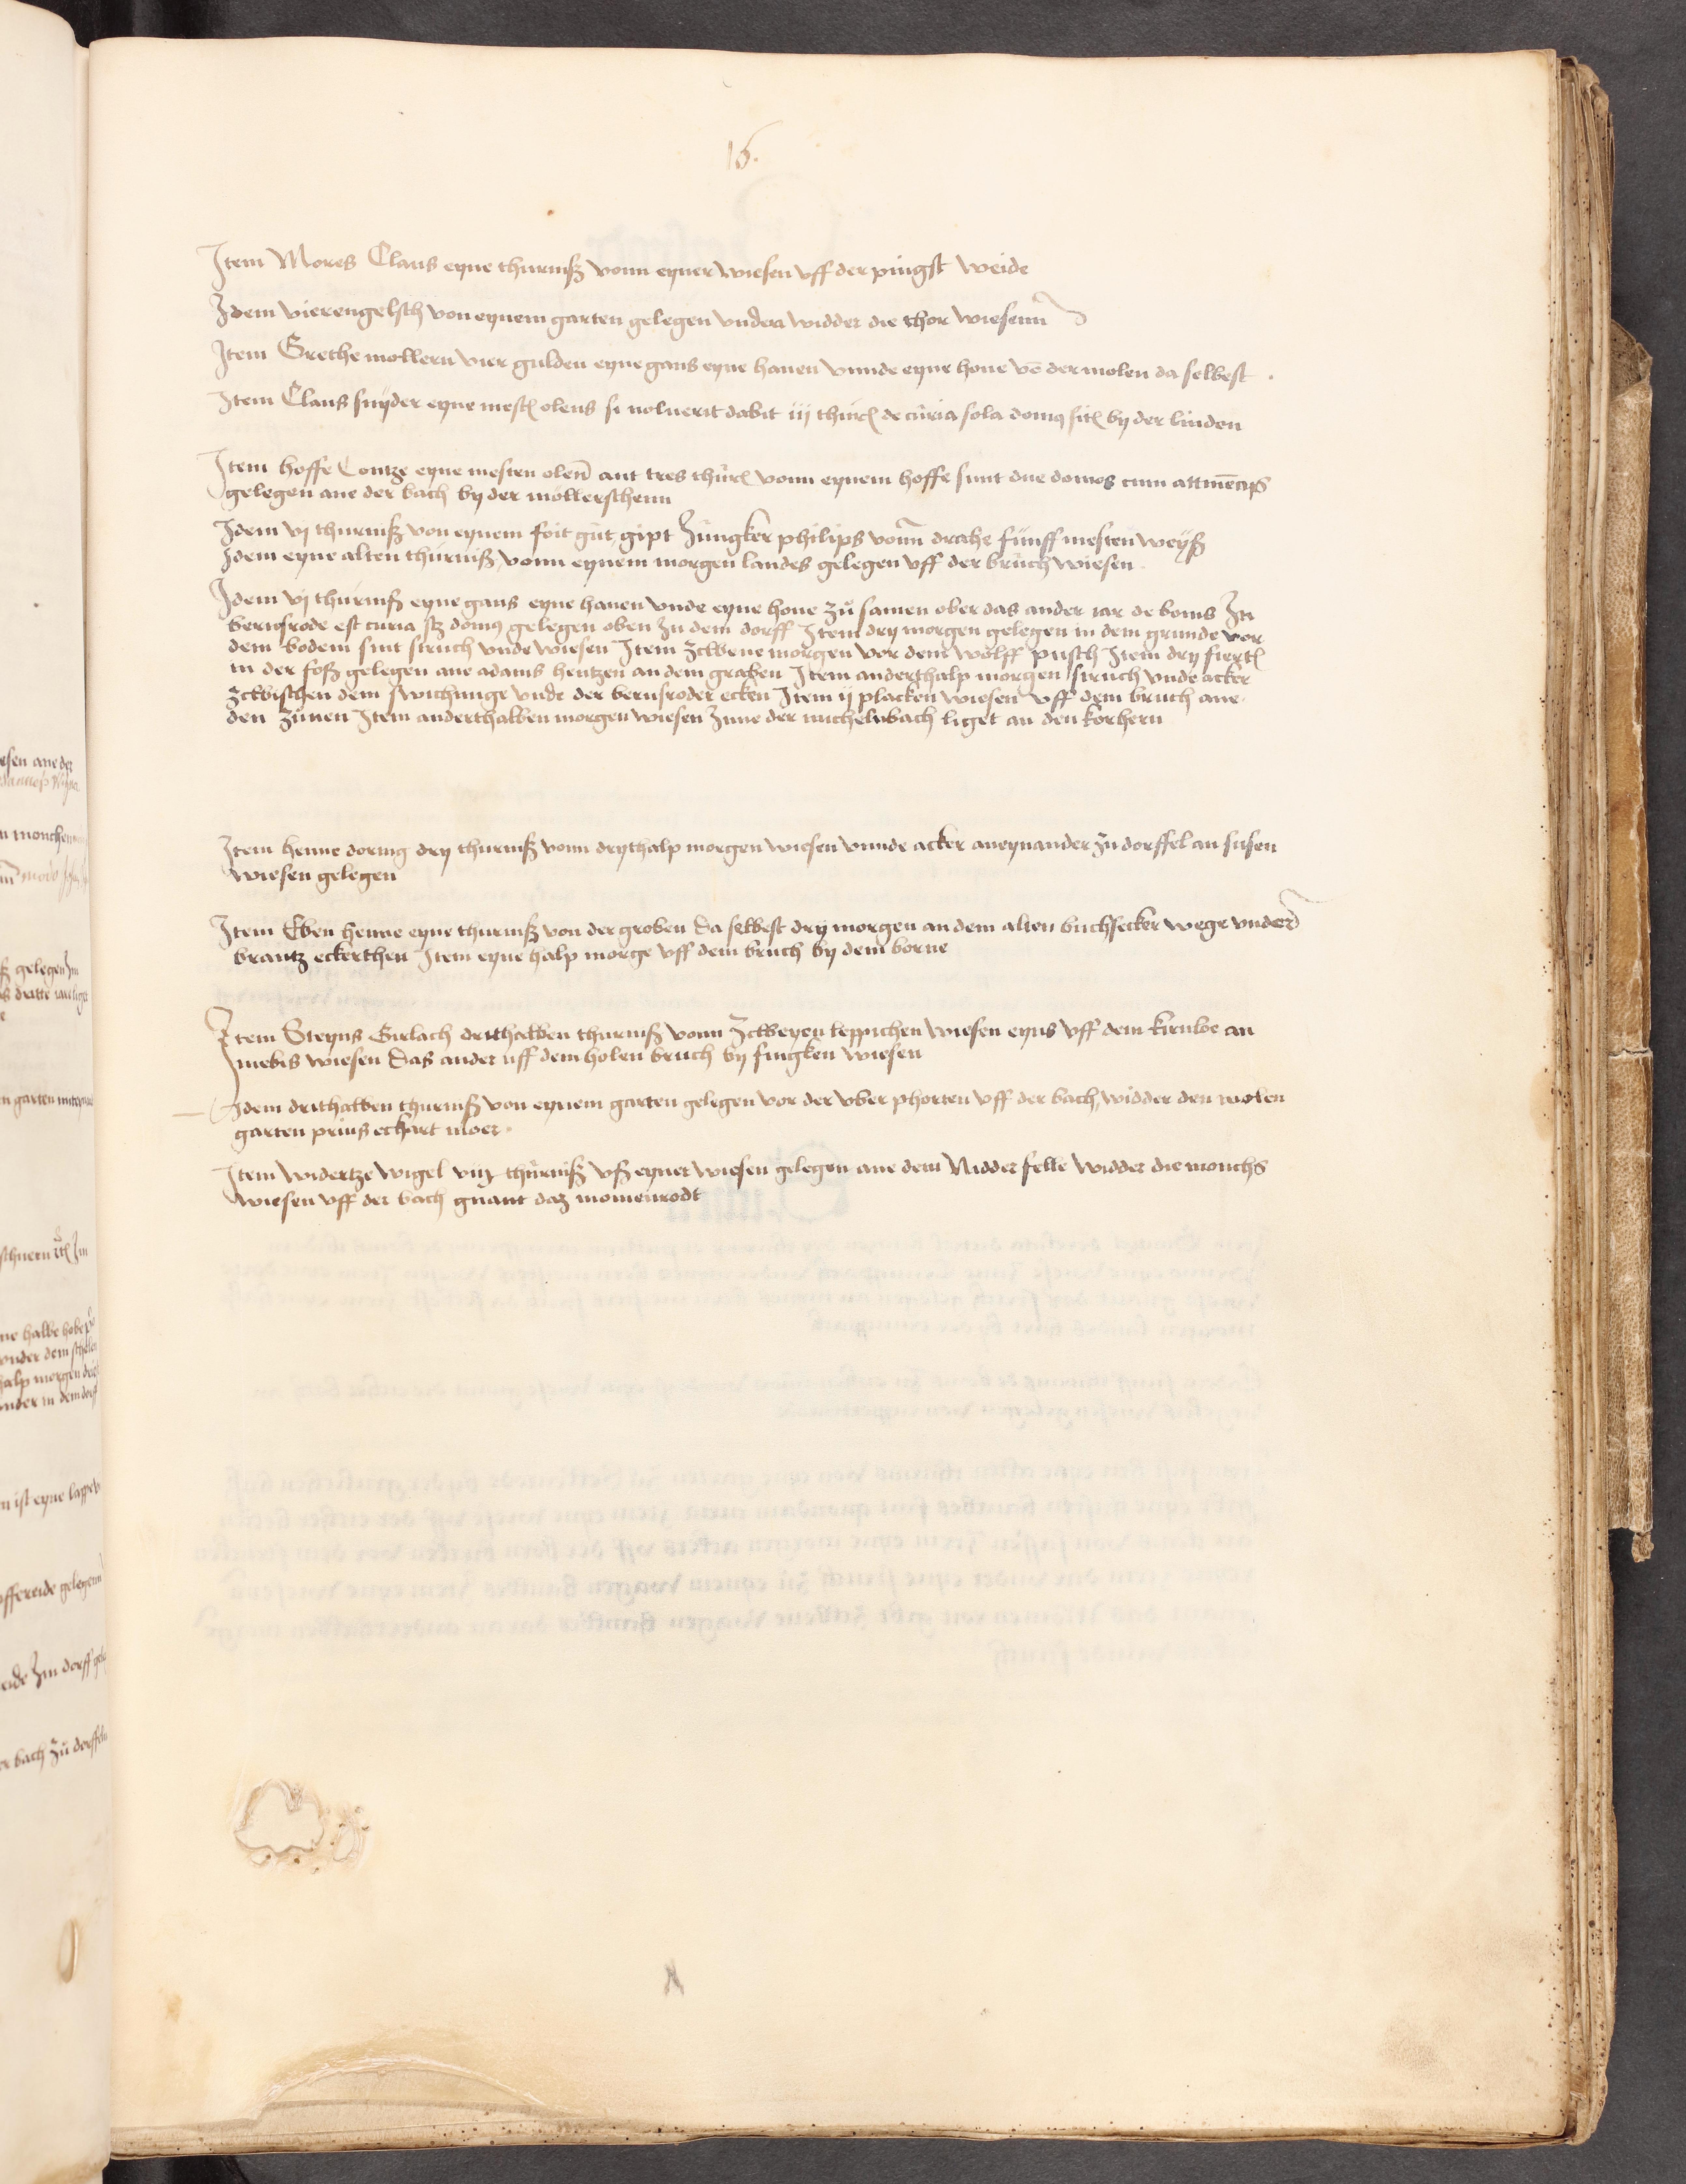 16.
Item Mores Claus eyne thurniß vonn eyner wiesen vff der pingst weide
Idem vierengelsch von eynem garten gelegen vnden widder die thor wiesenn
Item Grethe mollern vier gulden eyne gans eyne hanen vnnde eyne hone vō der molen da selbest
Item Claus snyder eyne mest olens si noluerit dabit iij thur de curia sola domus sit by der linden
Item hoffe Contze eyne mesten olen aut tres thur vonn eynem hoffe sunt due domos cum
gelegen ane der bach by der mollerschenn
Idem vj thurniß von eynem foit gut gipt Jungker philips vonn drahe funff mesten weyß
Idem eyne alten thurniß vonn eynem morgen landes gelegen vff der bruch wiesen
Idem vj thurniß eyne gans eyne hanen vnde eyne hone zu samen ober das ander iar de bonis In
bernsrode est curia sz domus gelegen oben In dem dorff Item dry morgen gelegen in dem grunde vor
dem bodem sint struch vnde wiesen Item zcwene morgen vor dem wolff pusch Item dry fiert
in der foß gelegen ane adams hentzen an dem graben Item anderthalp morgen struch vnde acker
zcwischen dem swichunge vnde der bernsroder ecken Item ij placken wiesen vff dem bruch ane
den zunen Item anderthalben morgen wiesen Inne der michelnbach liget an den korhern
Item henne doring dry thurniß vonn drythalp morgen wiesen vnnde acker aneynander zu dorffel an susen
wiesen gelegen
Item Eben henne eyne thurniß von der groben da selbest dry morgen an dem alten buchsecker wege vnder
brantz eckerthen Item eyne halp morge vff dem bruch by dem borne
Item Steyns Girlach drithalben thurniß vonn zcweyen leppichen wiesen eyns vff dem kirnloe an
mebis wiesen das ander uff dem holen bruch by fingken wiesen
Idem drithalben thurniß von eynem garten gelegen vor der vber phorten vff der bach widder den molen
garten prius eckart moer
Item widertze wigel thurniß vß eyner wiesen gelegen ane dem Nidder felle widder die monchs
wiesen vff der bach gnant daz momenrodt